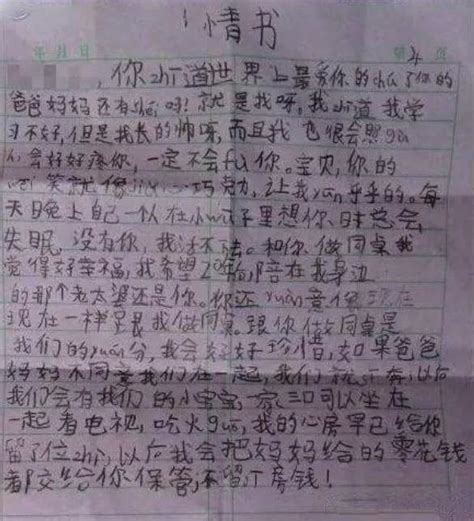 情书
年 月 日 第 4 页
，你zhī道世界上最爱你的chú了你的
爸爸妈妈还有shei吗！就是我呀。我zhī道我学
习不好，但是我长的帅呀，而且我也很会照gù
会好好疼你，一定不会fù你。宝贝，你的
wēi笑就像巧克力，让我yūn乎乎的。每
天晚上自己一个人在小wū子里想你时总会
失眠，没有你，我活不了。和你做同桌我
觉得好幸福，我希望20年后陪在我身边
的那个老太婆还是你。你还yuàn意像现在
现在一样呈跟我做同桌，跟你做同桌是
我们的yuán分，我会好好珍惜，如果爸爸
妈妈不同意我们在一起，我们就，以后
我们会有我们的小宝宝，一家三口可以坐在
一起看电视，吃火guō，我的心房早已给你
留了位zhì，以后我会把妈妈给的零花钱
都交给你保管，不留房钱！